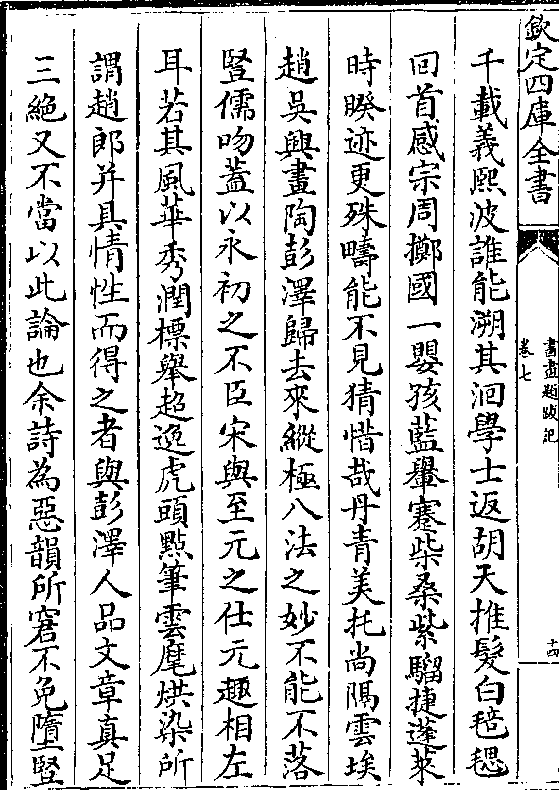 欽定四庫全書
書畫題跋記
卷七
十四
千載義熙波誰能溯其洄學士返胡天推髮白毰毸
回首感宗周擲國一嬰孩藍轝蹇柴桑紫騮捷蓬萊
時暌迹更殊疇能不見猜惜哉丹青美托尚隔雲埃
趙吳興畫陶彭澤歸去來縱極八法之妙不能不落
豎儒吻蓋以永初之不臣宋與至元之仕元趣相左
耳若其風華秀潤標舉超逸虎頭㸃筆雲麾烘染所
謂趙郎并具情性而得之者與彭澤人品文章真足
三絶又不當以此論也余詩為惡韻所窘不免墮豎